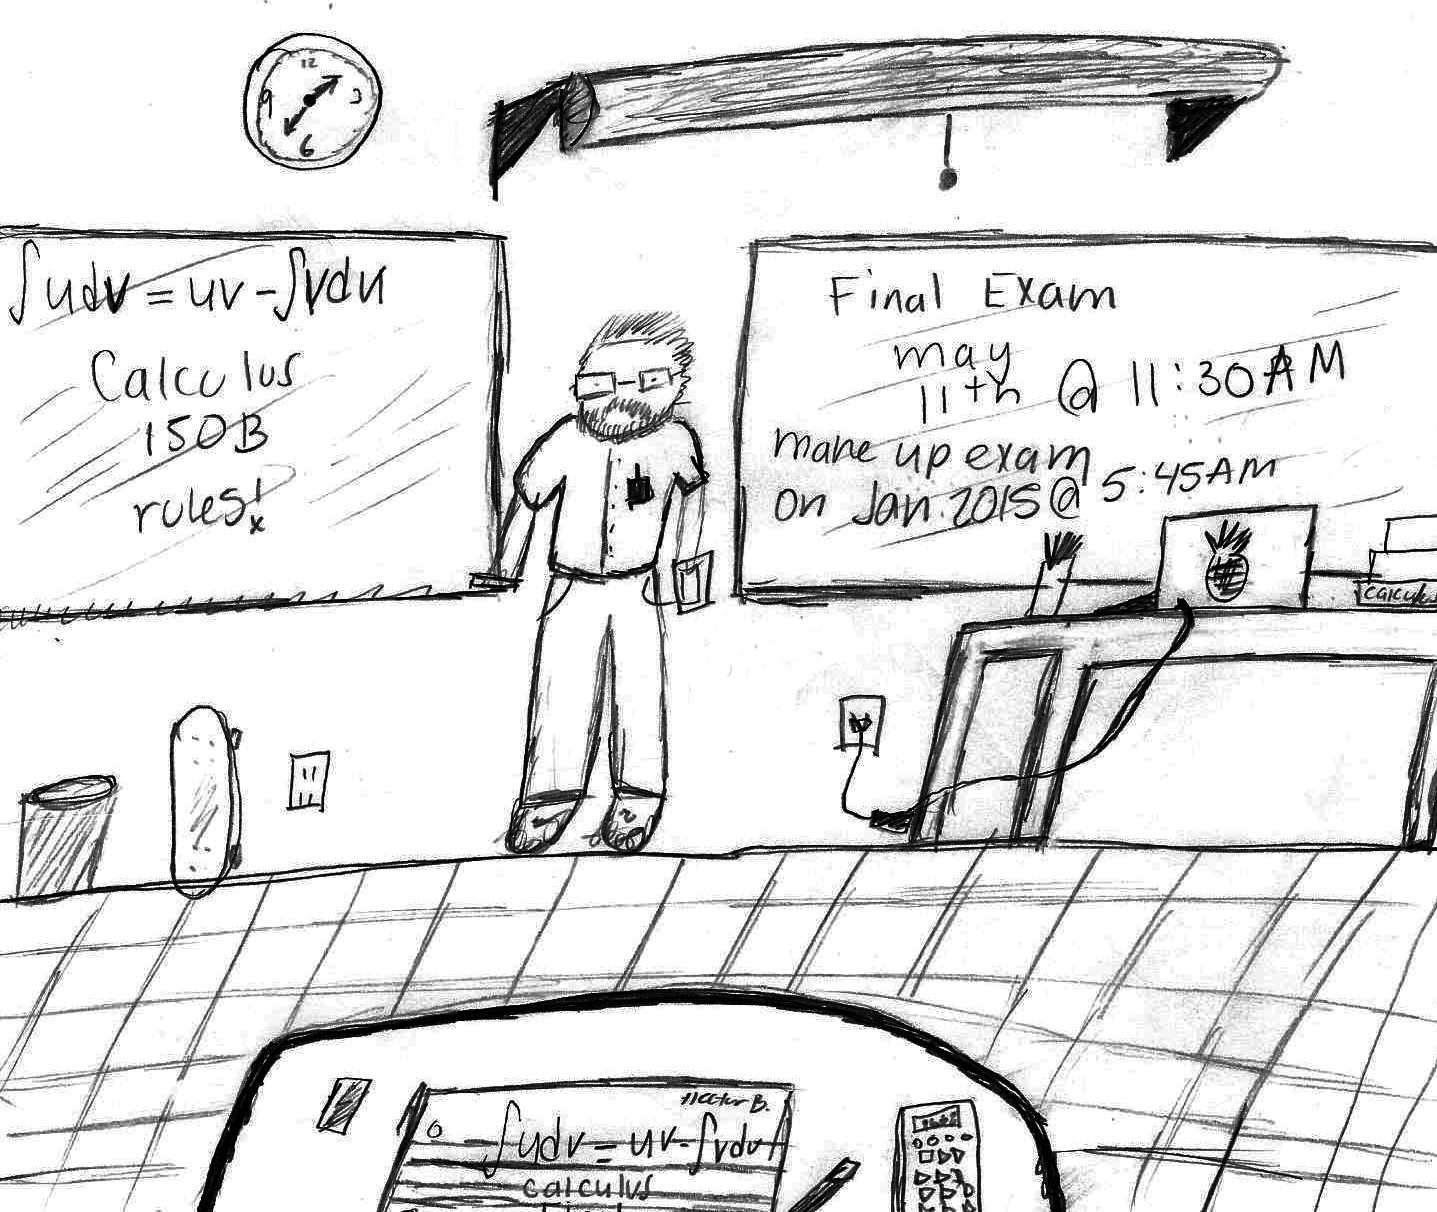 12
9 3
6
∫udv = uv - ∫vdu
Calculus
150B
rules!
Final Exam
may
11th @ 11:30AM
make up exam
on Jan. 2015 @ 5:45AM
calculus
Hector B.
∫udv = uv - ∫vdu
calculus